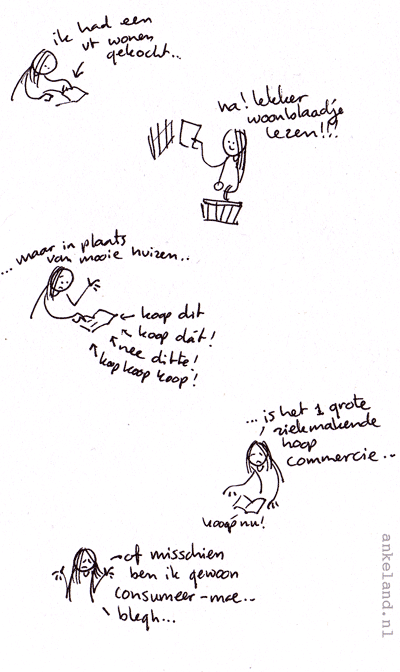 ik had een
vt wonen
gekocht...
ha! lekker
woonblaadje
lezen!!!
...maar in plaats
van mooie huizen..
koop dit
koop dát!
nee ditte!
koop koop koop!
...is het 1 grote
ziekmakende
hoop
commercie...
koop nu!
of misschien
ben ik gewoon
consumeer-moe...
blegh...
ankeland.nl